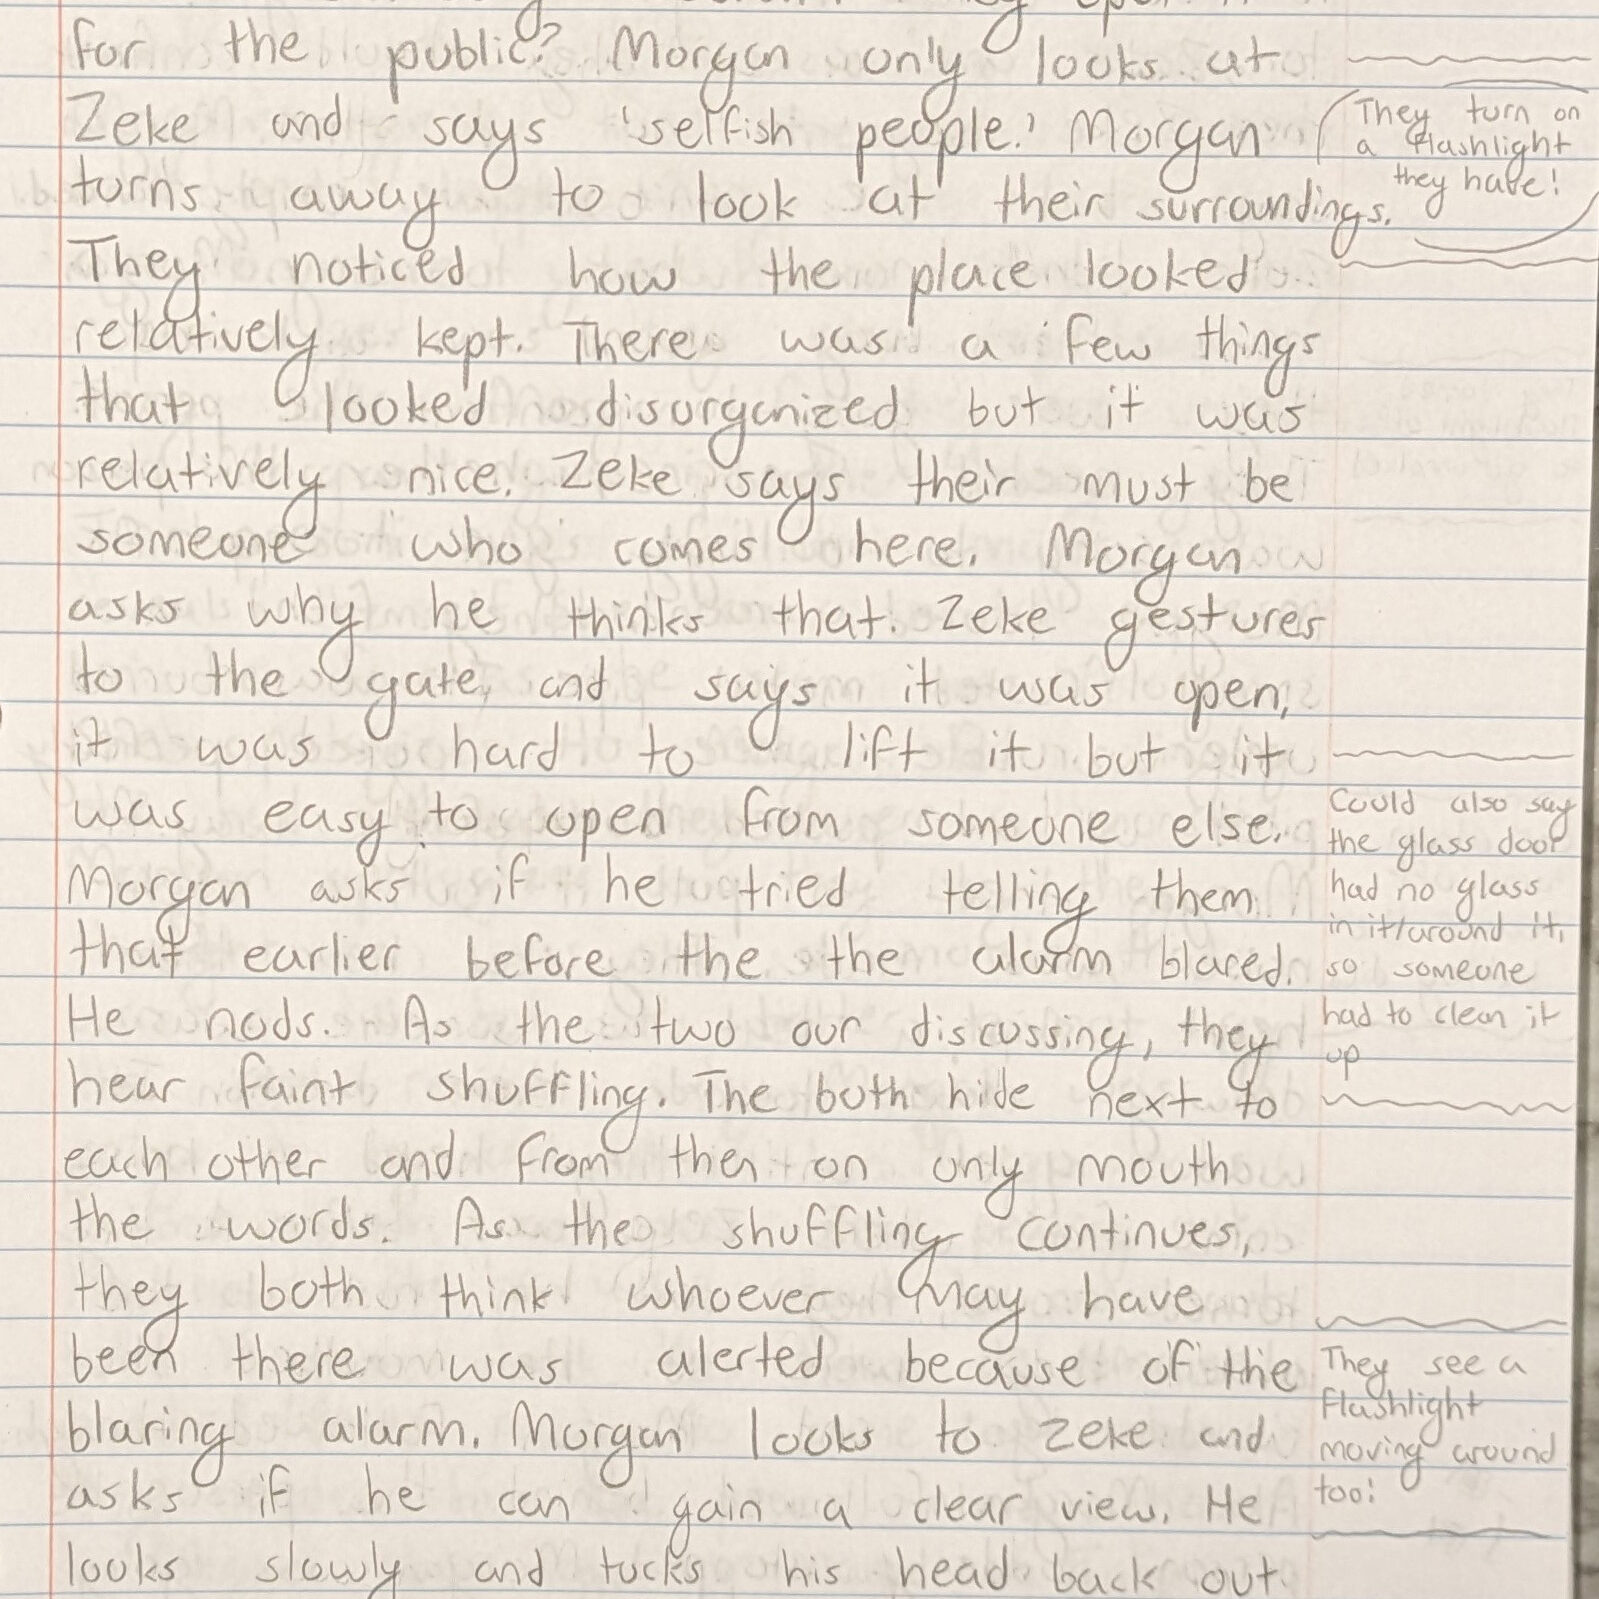 for the public? Morgan only looks at
Zeke and says 'selfish people.' Morgan
turns away to look at their surroundings.
They noticed how the place looked
relatively kept. There was a few things
that looked disorganized but it was
relatively nice. Zeke says their must be
someone who comes here. Morgan
asks why he thinks that. Zeke gestures
to the gate, and says it was open,
it was hard to lift it but it
was easy to open from someone else.
Morgan asks if he tried telling them
that earlier before the the alarm blared.
He nods. As the two our discussing, they
hear faint shuffling. The both hide next to
each other and from then on only mouth
the words. As the shuffling continues,
they both think whoever may have
been there was alerted because of the
blaring alarm. Morgan looks to Zeke and
asks if he can gain a clear view. He
looks slowly and tucks his head back out.
They turn on
a flashlight
they have!
Could also say
the glass door
had no glass
in it/around it,
so someone
had to clean it
up
They see a
flashlight
moving around
too!